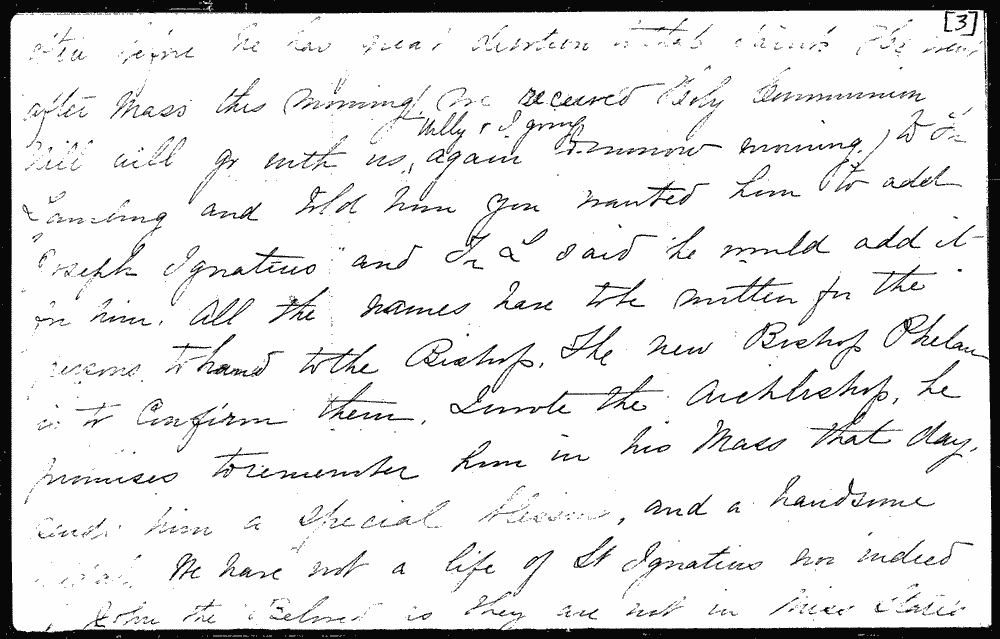 [3]
before he has great devotion to that saint. She went
after Mass this morning (we received Holy Communion
Willy & I going
will go with us, again tomorrow morning.) to Fr
Lambing and told him you wanted him to add
"Joseph Ignatius" and Fr L said he would add it
for him. All the names have to be written for the
persons to hand to the Bishop. The new Bishop Phelan
is to Confirm them. I wrote the Archbishop, he
promises to remember him in his Mass that day,
sends him a special blessing, and a handsome
We have not a life of St Ignatius nor indeed
John the Beloved is they are not in Miss